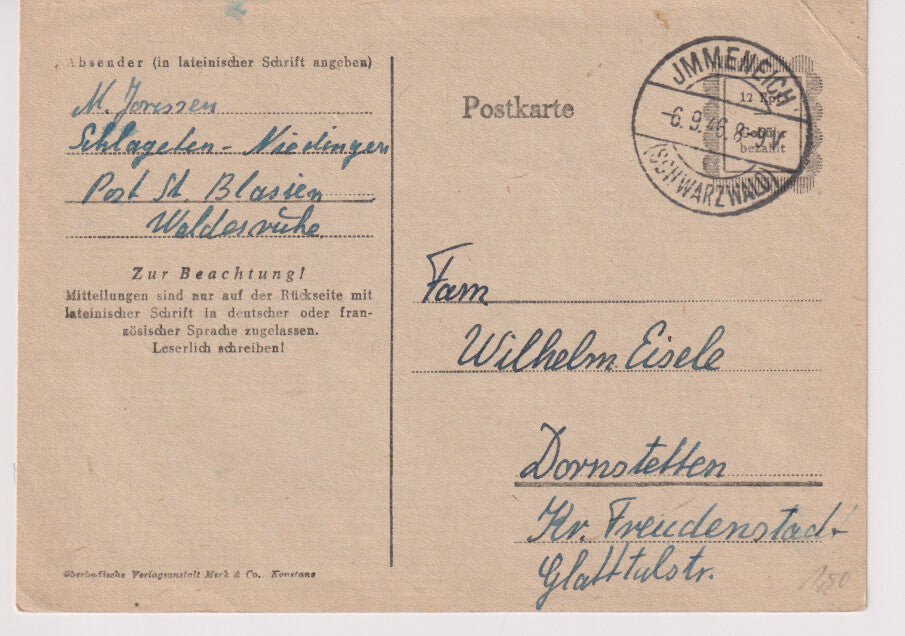 Absender (in lateinischer Schrift angeben)
M. Jorissen
Schlageten - Niedingen
Post St. Blasien
Waldesruhe
Zur Beachtung!
Mitteilungen sind nur auf der Rückseite mit
lateinischer Schrift in deutscher oder fran-
zösischer Sprache zugelassen.
Leserlich schreiben!
Oberbadische Verlagsanstalt Merk & Co. Konstanz
Postkarte
JMMENEICH
-6.9.46.8-9V
(SCHWARZWALD)
12
Gebühr
bezahlt
Fam
Wilhelm Eisele
Dornstetten
Kr. Freudenstadt
Glattalstr.
150